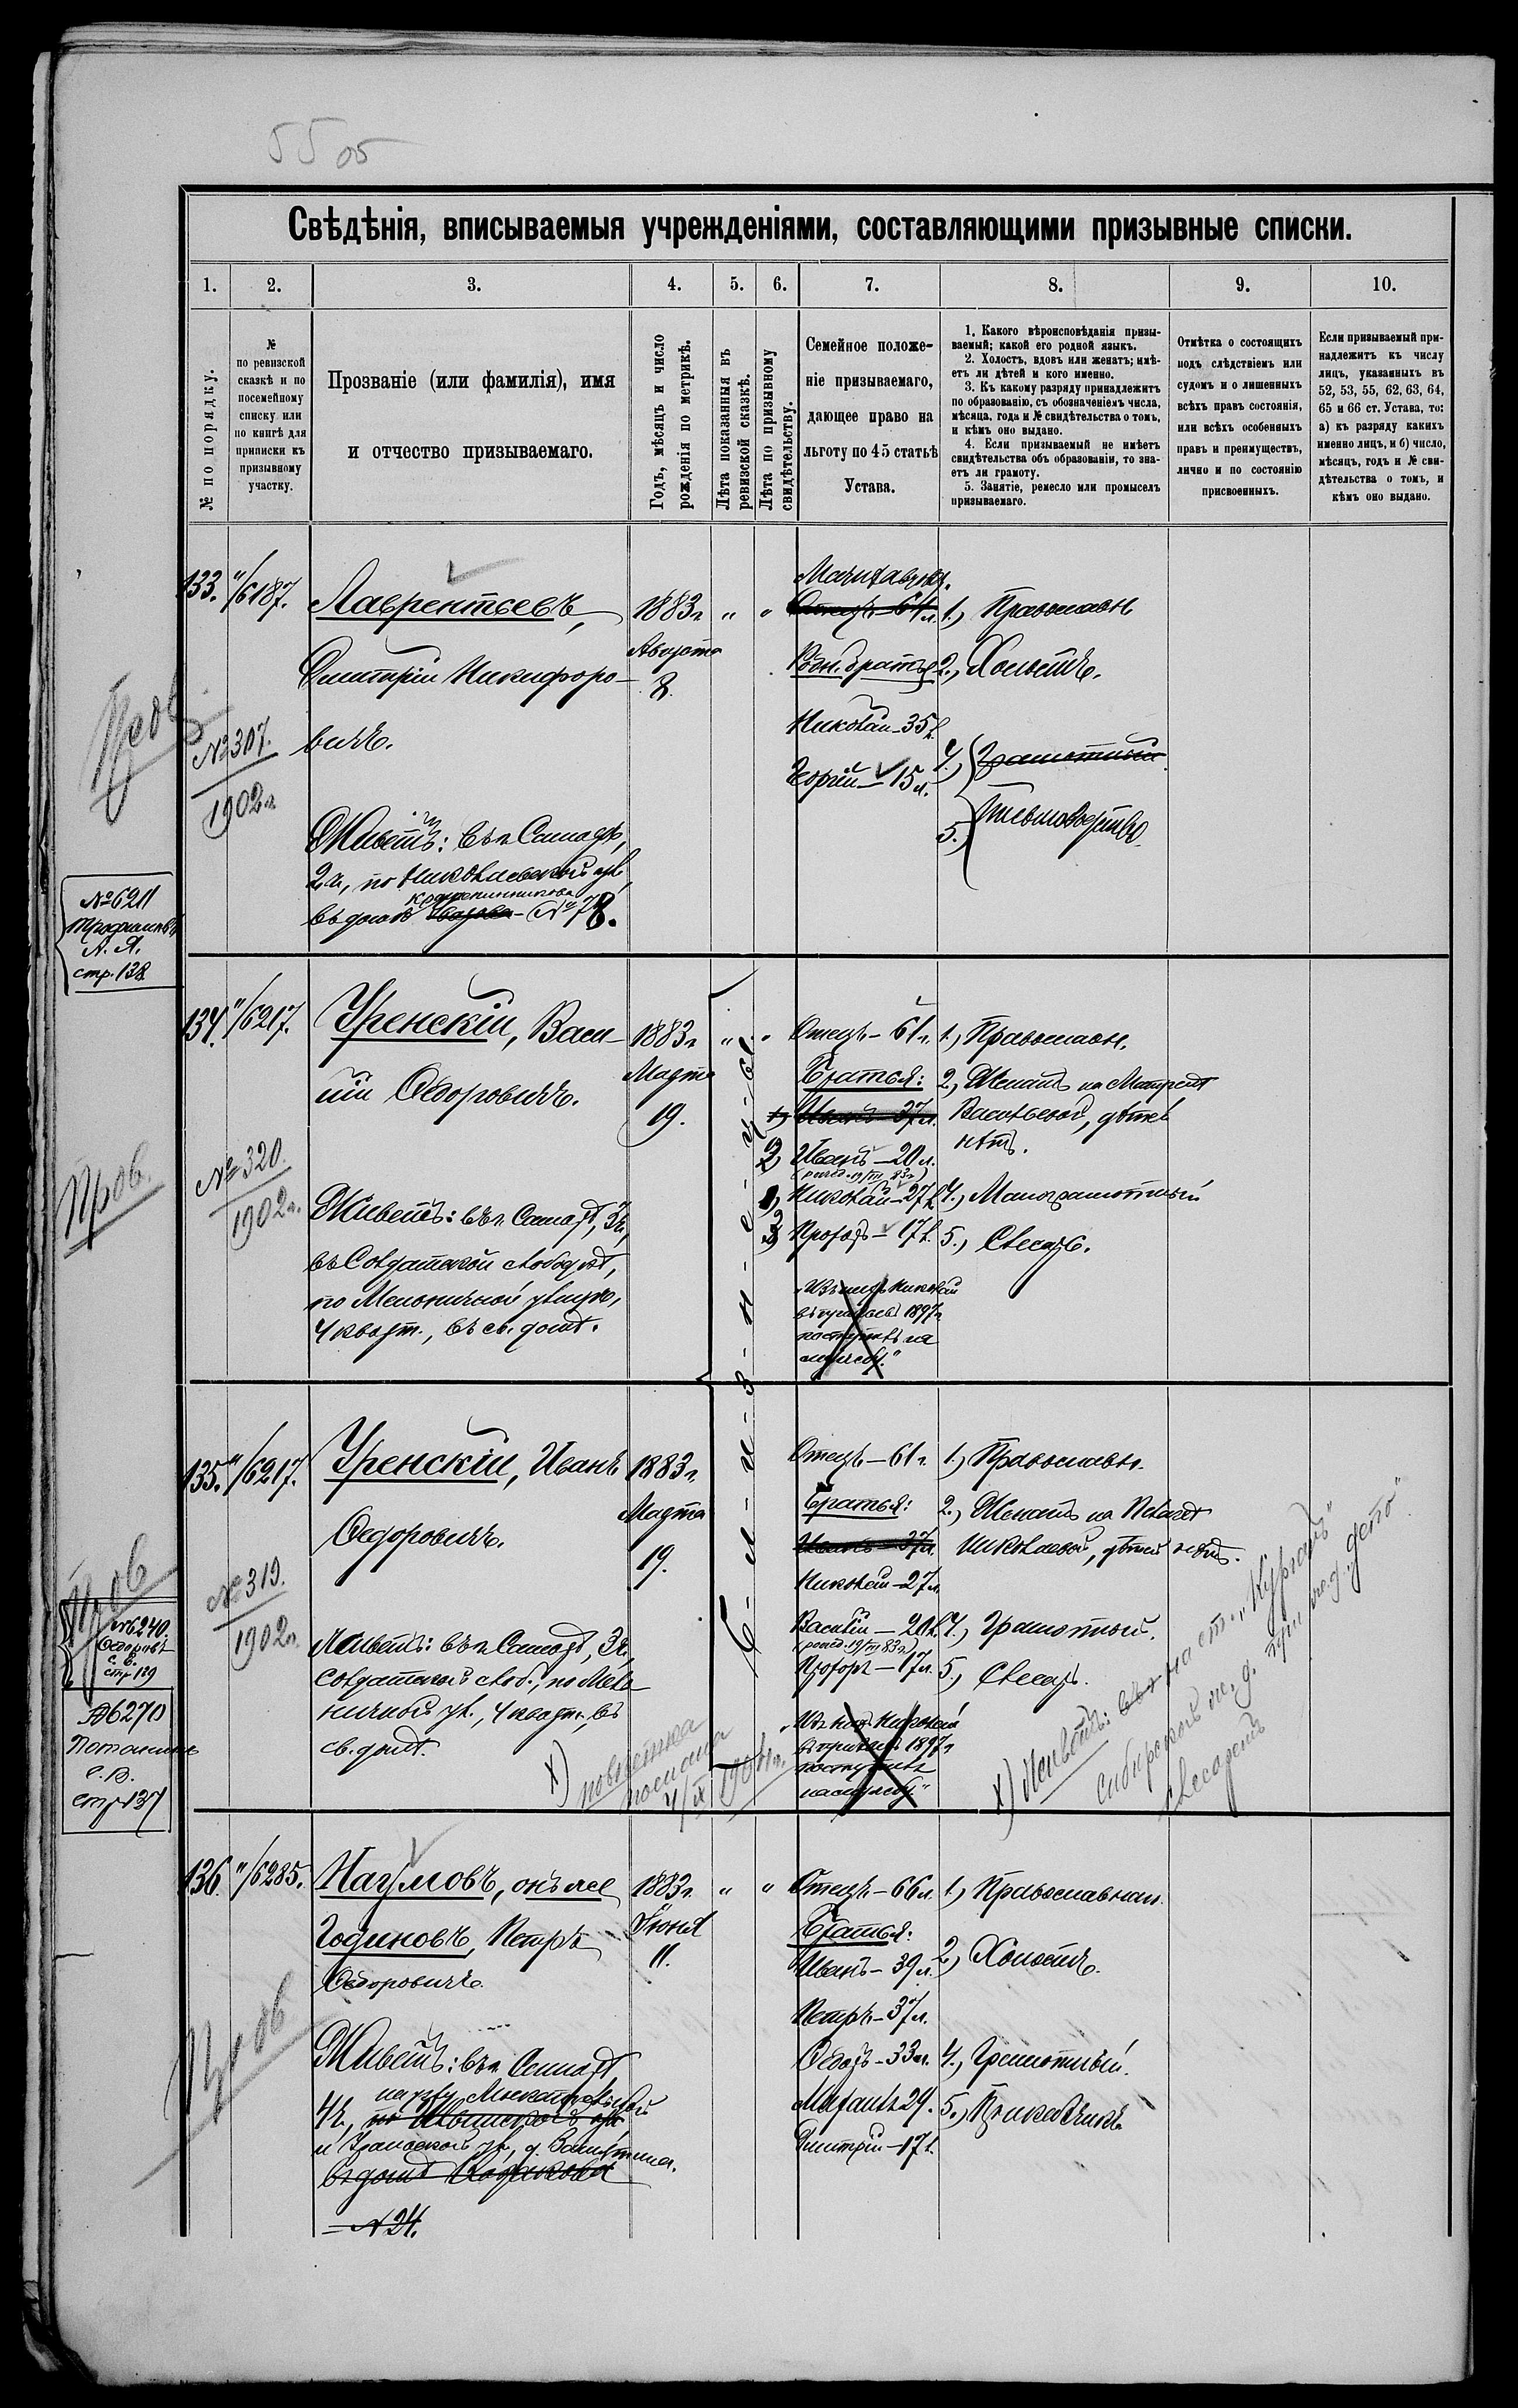 5505
Свѣдѣнія, вписываемыя учрежденіями, составляющими призывные списки.
1. 2. 3. 4. 5. 6. 7. 8. 9. 10.
№ по порядку.
№
по ревизской
сказкѣ и по
посемейному
списку или
по книгѣ для
приписки къ
призывному
участку.
Прозваніе (или фамилія), имя
и отчество призываемаго.
Годъ, мѣсяцъ и число
рожденія по метрикѣ.
Лѣта показанныя въ
ревизской сказкѣ.
Лѣта по призывному
свидѣтельству.
Семейное положе-
ніе призываемаго,
дающее право на
льготу по 45 статьѣ
Устава.
1. Какого вѣроисповѣданія призы-
ваемый; какой его родной языкъ.
2. Холостъ, вдовъ или женатъ; имѣ-
етъ ли дѣтей и кого именно.
3. Къ какому разряду принадлежитъ
по образованію, съ обозначеніемъ числа,
мѣсяца, года и № свидѣтельства о томъ,
и кѣмъ оно выдано.
4. Если призываемый не имѣетъ
свидѣтельства объ образованіи, то зна-
етъ ли грамоту.
5. Занятіе, ремесло или промыселъ
призываемаго.
Отмѣтка о состоящихъ
подъ слѣдствіемъ или
судомъ и о лишенныхъ
всѣхъ правъ состоянія,
или всѣхъ особенныхъ
правъ и преимуществъ,
лично и по состоянію
присвоенныхъ.
Если призываемый при-
надлежитъ къ числу
лицъ, указанныхъ въ
52, 53, 55, 62, 63, 64,
65 и 66 ст. Устава, то:
а) къ разряду какихъ
именно лицъ, и б) число,
мѣсяцъ, годъ и № сви-
дѣтельства о томъ, и
кѣмъ оно выдано.
133. "/6187.
Лаврентьевъ,
Дмитрій Никифоро-
вичъ.
№ 307.
1902 г.
Живетъ: въ г. Самарѣ,
2 ч., по Николаевской ул.,
въ домѣ № 78.
1883 г.
Августа
" "
Отецъ — 61 л.
Родн. братья
Николай — 35 л.
Георгій — 15 л.
1.) Православн
2.) Холостъ.
4.) Грамотный
5.) Письмоводство
№ 6211
А. Я.
стр. 138
134. "/6217.
Уренскій, Васи-
лій Ѳедоровичъ.
№ 320.
1902 г.
Пров.
Живетъ: въ г. Самарѣ, 3 ч.,
въ Солдатской слободкѣ,
по Мельничной улицѣ,
4 кварт., въ св. домѣ.
1883 г.
Марта
19.
" "
Б-л-и-з-н-е-ц-ы
Отецъ — 61 г.
Братья:
Иванъ — 37 л.
Иванъ — 20 л.
(рожд. 19/III 83 г.)
Николай — 27 л.
Прохоръ — 17 л.
"Изъ нихъ Николай
въ призывъ 1897 г.
поступилъ на
службу."
1.) Православн.
2.) Женатъ на Матренѣ
Васильевой, дѣтей
нѣтъ.
4.) Малограмотный
5.) Слесарь.
135. "/6217.
Уренскій, Иванъ
Ѳедоровичъ.
№ 319.
1902 г.
Живетъ: въ г. Самарѣ, 3 ч.,
Солдатской слоб., по Мель-
ничной ул., 4 кварт., въ
св. домѣ.
1883 г.
Марта
19.
Отецъ — 61 г.
Братья:
Иванъ — 37 л.
Николай — 27 л.
Василій — 20 л.
(рожд. 19/III 83 г.)
Прохоръ — 17 л.
"Изъ нихъ Николай
въ призывъ 1897 г.
поступилъ
на службу."
1.) Православн.
2.) Женатъ на Пелагеѣ
Николаевой, дѣтей
4.) Грамотный.
5.) Слесарь.
х) повѣстка
послана
4/IX 1904 г.
х) Живетъ: на ст. "Курганъ"
Сибирской ж. д. при жел. депо
слесаремъ
Пров
№ 6240.
Ѳедоровъ
С. В.
стр 129
№ 6270
С. В.
стр 137
136. "/6285.
Наумовъ, онъ же
Годиновъ, Петръ
Ѳедоровичъ.
Живетъ: въ г. Самарѣ
4 ч.,
№ 24.
1883 г.
Іюня
11.
" "
Отецъ — 66 л.
Братья:
Иванъ — 39 л.
Петръ — 37 л.
Ѳедоръ — 33 л.
Дмитрій — 17 л.
1.) Православный.
2.) Холостъ.
4.) Грамотный.
5.) Приказчикъ
Пров